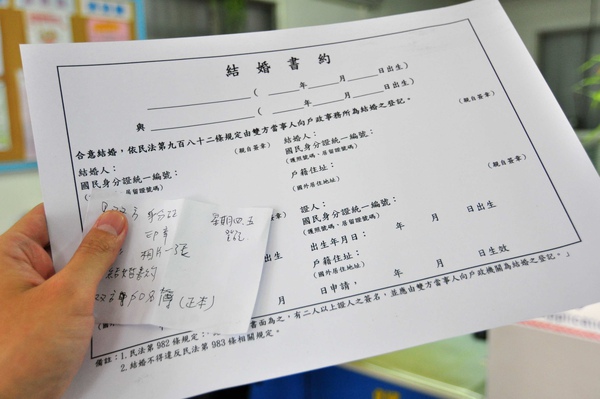 結婚書約
( 年 月 日出生)
與 ( 年 月 日出生)
合意結婚，依民法第九百八十二條規定由雙方當事人向戶政事務所為結婚之登記。
結婚人： (親自簽章)
國民身分證統一編號：
居留證號碼)
結婚人： (親自簽章)
國民身分證統一編號：
(護照號碼、居留證號碼)
戶籍住址：
(國外居住地址)
證人： (親自簽章)
國民身分證統一編號：
(護照號碼、居留證號碼)
出生年月日： 年 月 日
戶籍住址：
(國外居住地址)
月 日申請， 年 月 日生效
備註：1.民法第982條規定： 書面為之，有二人以上證人之簽名，並應由雙方當事人向戶政機關為結婚之登記。」
2.結婚不得違反民法第983條相關規定。
身分証
印章
相片一張
結婚書約
(正本)
星期四.五
登記